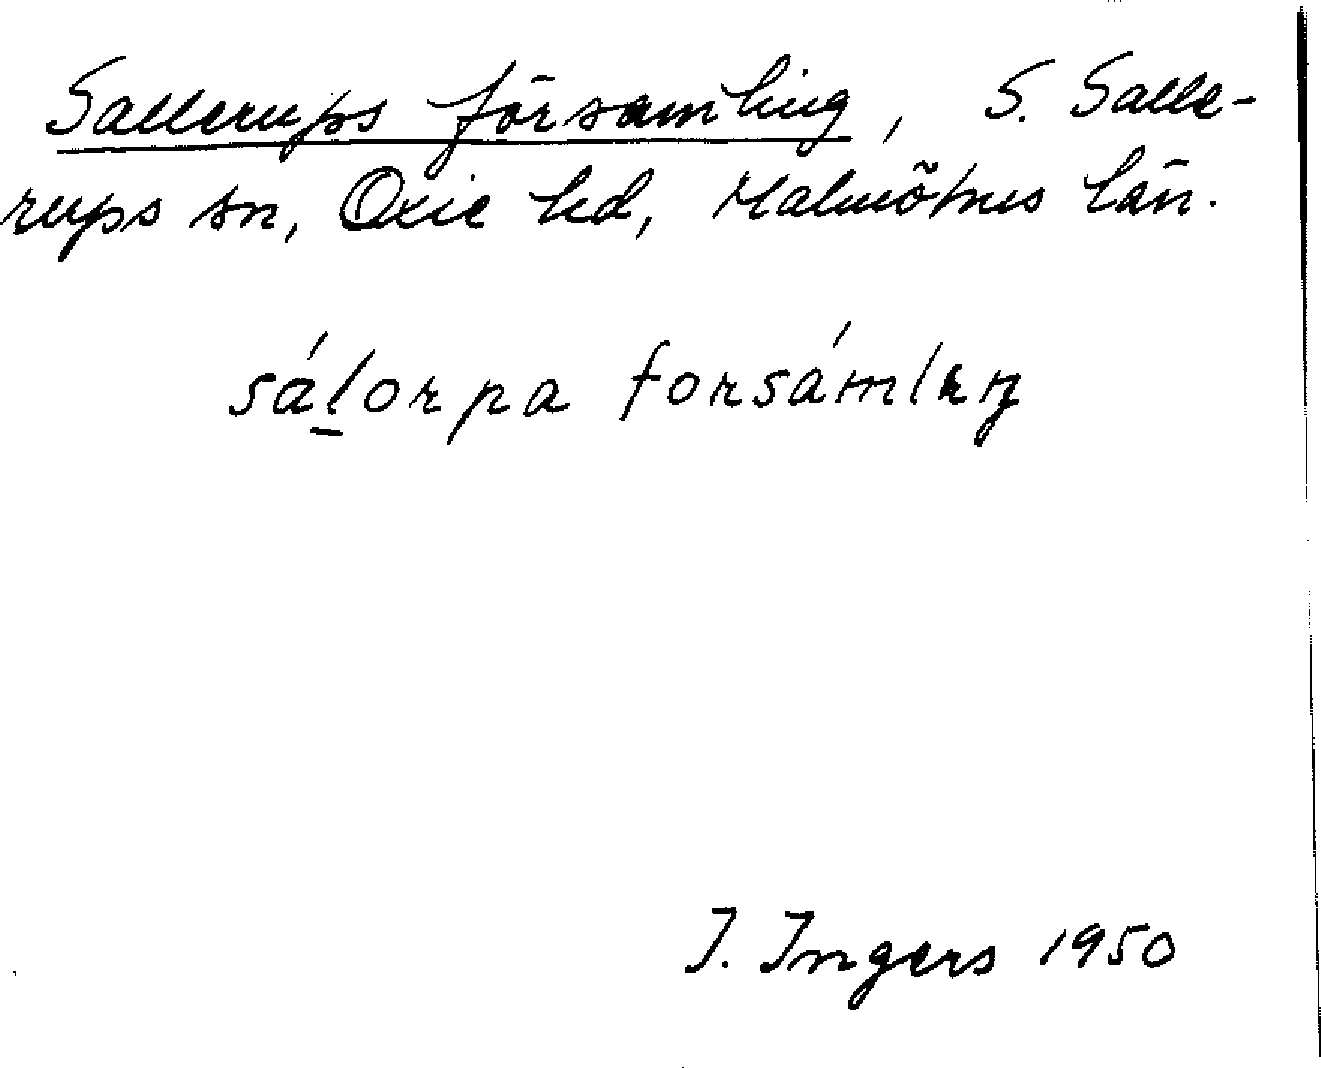 Sallerups församling, S. Salle-
rups sn, Oxie hd, Malmöhus län.
sál̲orpa forsámlıŋ
I. Ingers 1950